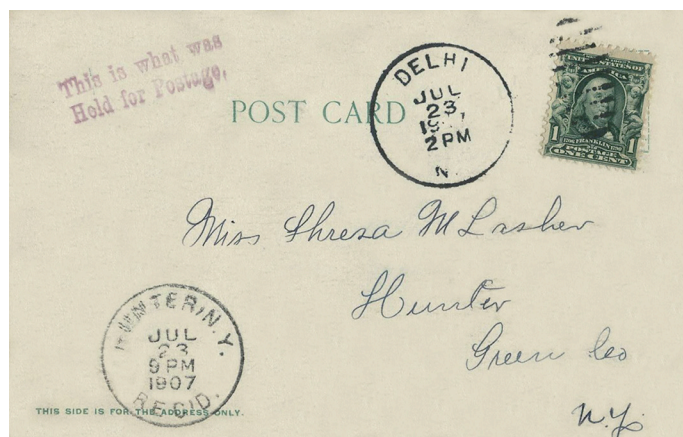 This is what was
Held for Postage.
POST CARD
DELHI
JUL
23
2 PM
N.
UNITED STATES OF
AMERICA
1 FRANKLIN 1
POSTAGE
ONE CENT
Miss Thresa M Lasher
Hunter
Green Co
N.Y.
HUNTER, N.Y.
JUL
23
9 PM
1907
REC'D.
THIS SIDE IS FOR THE ADDRESS ONLY.